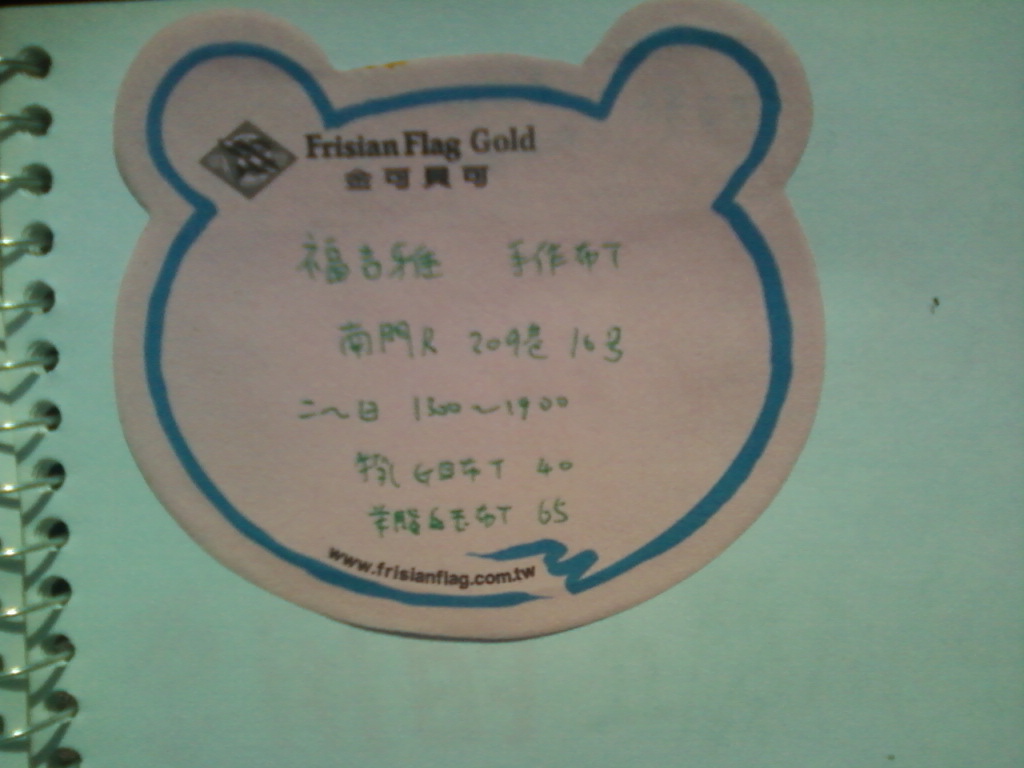 Frisian Flag Gold
金可貝可
福吉雅 手作布丁
南門R 209巷 16号
二~日 1300~1900
布丁 40
羊脂白玉布丁 65
www.frisianflag.com.tw